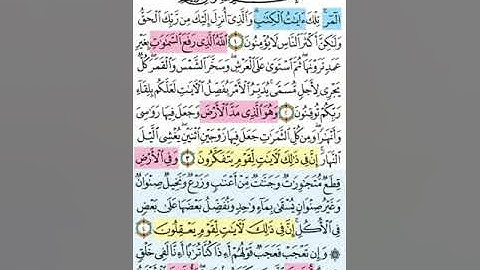 الٓمٓر تِلْكَ ءَايَٰتُ ٱلْكِتَٰبِ وَٱلَّذِىٓ أُنزِلَ إِلَيْكَ مِن رَّبِّكَ ٱلْحَقُّ
وَلَٰكِنَّ أَكْثَرَ ٱلنَّاسِ لَا يُؤْمِنُونَ ١ ٱللَّهُ ٱلَّذِى رَفَعَ ٱلسَّمَٰوَٰتِ بِغَيْرِ
عَمَدٍ تَرَوْنَهَا ثُمَّ ٱسْتَوَىٰ عَلَى ٱلْعَرْشِ وَسَخَّرَ ٱلشَّمْسَ وَٱلْقَمَرَ كُلٌّ
يَجْرِى لِأَجَلٍ مُّسَمًّى يُدَبِّرُ ٱلْأَمْرَ يُفَصِّلُ ٱلْءَايَٰتِ لَعَلَّكُم بِلِقَآءِ
رَبِّكُمْ تُوقِنُونَ ٢ وَهُوَ ٱلَّذِى مَدَّ ٱلْأَرْضَ وَجَعَلَ فِيهَا رَوَٰسِىَ
وَأَنْهَٰرًا وَمِن كُلِّ ٱلثَّمَرَٰتِ جَعَلَ فِيهَا زَوْجَيْنِ ٱثْنَيْنِ يُغْشِى ٱلَّيْلَ
ٱلنَّهَارَ إِنَّ فِى ذَٰلِكَ لَءَايَٰتٍ لِّقَوْمٍ يَتَفَكَّرُونَ ٣ وَفِى ٱلْأَرْضِ
قِطَعٌ مُّتَجَٰوِرَٰتٌ وَجَنَّٰتٌ مِّنْ أَعْنَٰبٍ وَزَرْعٌ وَنَخِيلٌ صِنْوَانٌ
وَغَيْرُ صِنْوَانٍ يُسْقَىٰ بِمَآءٍ وَٰحِدٍ وَنُفَضِّلُ بَعْضَهَا عَلَىٰ بَعْضٍ
فِى ٱلْأُكُلِ إِنَّ فِى ذَٰلِكَ لَءَايَٰتٍ لِّقَوْمٍ يَعْقِلُونَ ٤
وَإِن تَعْجَبْ فَعَجَبٌ قَوْلُهُمْ أَءِذَا كُنَّا تُرَٰبًا أَءِنَّا لَفِى خَلْقٍ